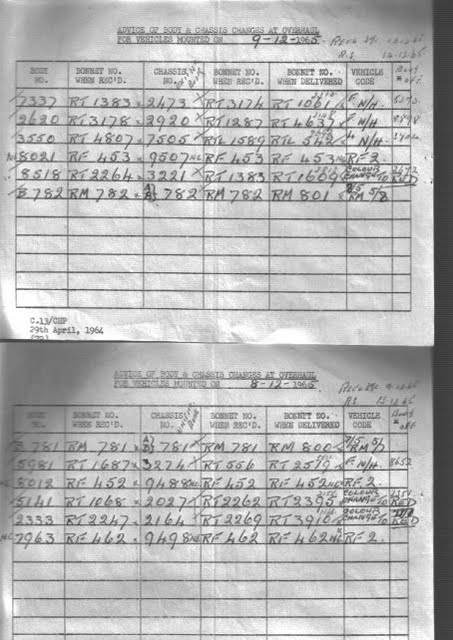 ADVICE OF BODY & CHASSIS CHANGES AT OVERHAUL
FOR VEHICLES MOUNTED ON 9-12-1965
BODY NO. BONNET NO. WHEN REC'D. CHASSIS NO. BONNET NO. WHEN REC'D. BONNET NO. WHEN DELIVERED VEHICLE CODE Body OFF
7337 RT 1383 2473 RT 3174 RT 1061 F N/H
2620 RT 3178 2920 RT 1287 RT 4637 N/H
3550 RT 4807 7505 RTL 1589 RTL 542 N/H
8021 RF 453 9507 NC RF 453 RF 453 NC RF 2
8518 RT 2264 3221 RT 1383 RT 1609 COLOUR CHANGE TO RED
B 782 RM 782 782 RM 782 RM 801 RM 5/8
C.13/CHP
29th April, 1964
ADVICE OF BODY & CHASSIS CHANGES AT OVERHAUL
FOR VEHICLES MOUNTED ON 8-12-1965
BODY NO. BONNET NO. WHEN REC'D. CHASSIS NO. BONNET NO. WHEN REC'D. BONNET NO. WHEN DELIVERED VEHICLE CODE Body OFF
B 781 RM 781 781 RM 781 RM 800
5981 RT 1687 3274 RT 556 RT 2579 F N/H
8012 RF 452 9488 NC RF 452 RF 452 NC RF 2
5141 RT 1068 2027 RT 2262 RT 2395 COLOUR CHANGE TO RED
2333 RT 2247 2164 RT 2269 RT 3910 COLOUR CHANGE TO RED
NC 7963 RF 462 9498 NC RF 462 RF 462 NC RF 2